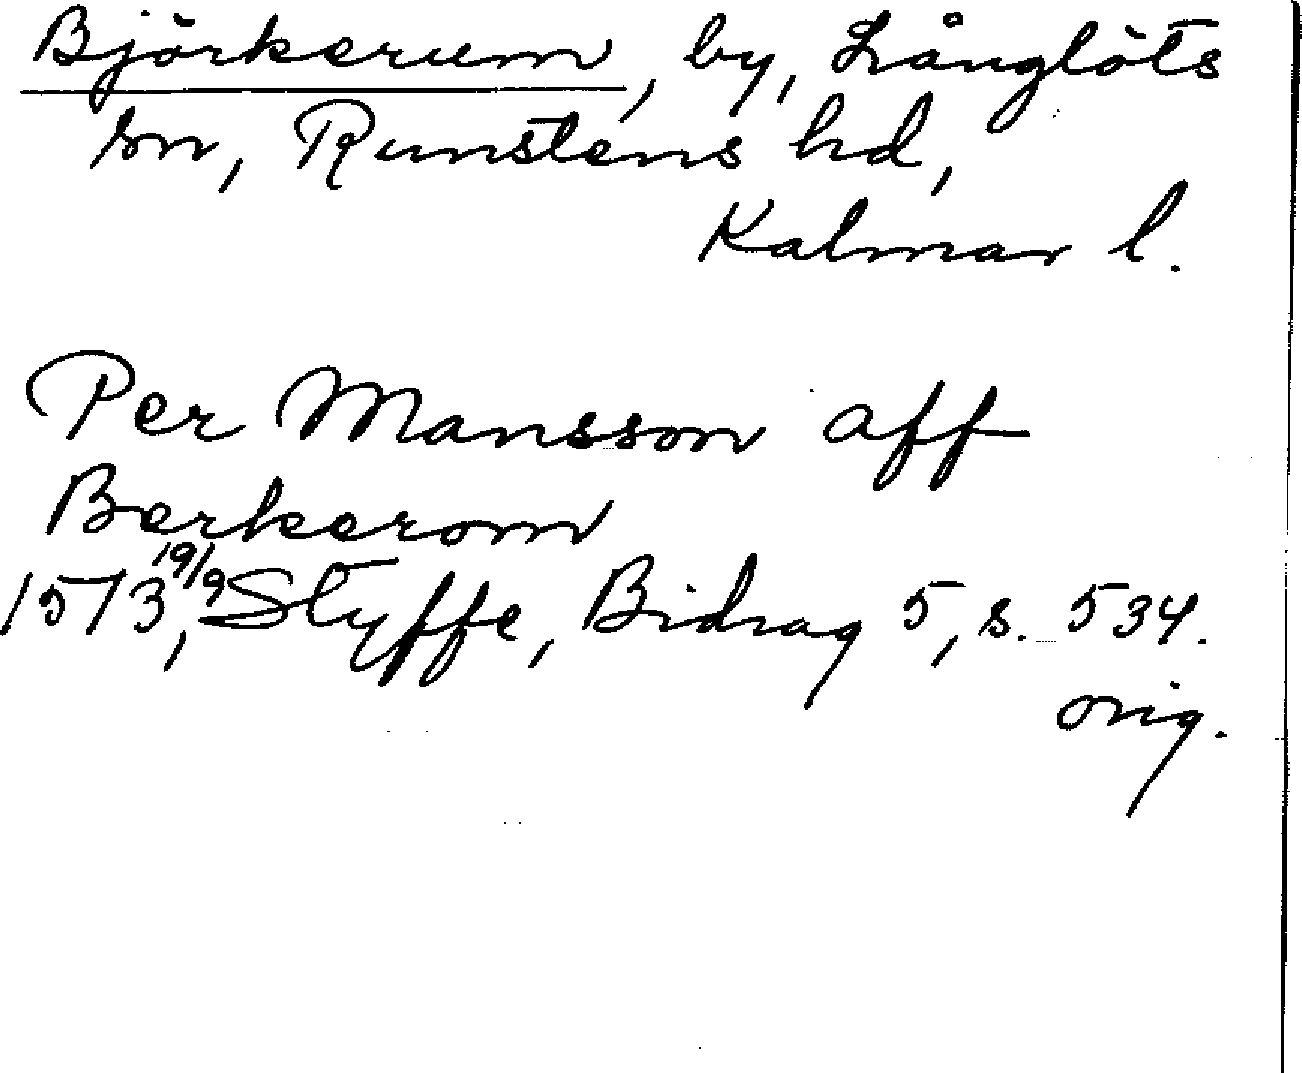 Björkerum, by, Långlöts
sn, Runstens hd,
Kalmar l.
Per Mansson aff
Berkerom
1573 19/9, Styffe, Bidrag 5, s. 534.
orig.